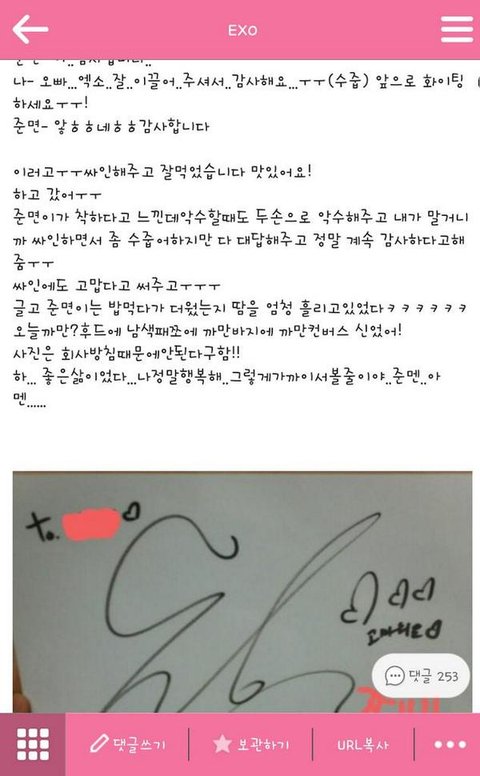 EXO
나- 오빠...엑소..잘..이끌어..주셔서..감사해요...ㅜㅜ(수줍) 앞으로 화이팅
하세요ㅜㅜ!
준면- 앟ㅎㅎ네ㅎㅎ감사합니다
이러고ㅜㅜ싸인해주고 잘먹었습니다 맛있어요!
하고 갔어ㅜㅜ
준면이가 착하다고 느낀데악수할때도 두손으로 악수해주고 내가 말거니
까 싸인하면서 좀 수줍어하지만 다 대답해주고 정말 계속 감사하다고해
줌ㅜㅜ
싸인에도 고맙다고 써주고ㅜㅜㅜ
글고 준면이는 밥먹다가 더웠는지 땀을 엄청 흘리고있었다ㅋㅋㅋㅋㅋㅋ
오늘까만?후드에 남색패쪼에 까만바지에 까만컨버스 신었어!
사진은 회사방침때문에안됀다구함!!
하... 좋은삶이었다...나정말행복해..그렇게가까이서볼줄이야..준멘..아
멘......
To.
고마워요
댓글 253
댓글쓰기
보관하기
URL복사